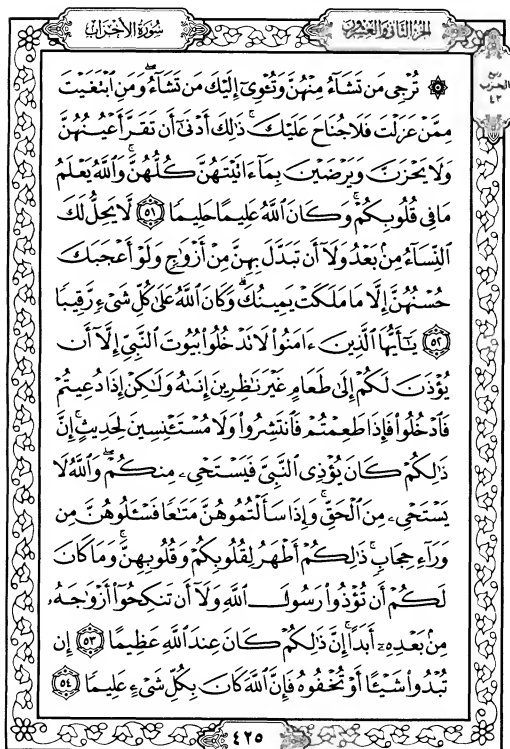 الجزء الثاني والعشرون
سورة الأحزاب
ربع
الحزب
٤٣
۞ تُرْجِى مَن تَشَآءُ مِنْهُنَّ وَتُـْٔوِىٓ إِلَيْكَ مَن تَشَآءُ ۖ وَمَنِ ٱبْتَغَيْتَ
مِمَّنْ عَزَلْتَ فَلَا جُنَاحَ عَلَيْكَ ۚ ذَٰلِكَ أَدْنَىٰٓ أَن تَقَرَّ أَعْيُنُهُنَّ
وَلَا يَحْزَنَّ وَيَرْضَيْنَ بِمَآ ءَاتَيْتَهُنَّ كُلُّهُنَّ ۚ وَٱللَّهُ يَعْلَمُ
مَا فِى قُلُوبِكُمْ ۚ وَكَانَ ٱللَّهُ عَلِيمًا حَلِيمًا ٥١ لَّا يَحِلُّ لَكَ
ٱلنِّسَآءُ مِنۢ بَعْدُ وَلَآ أَن تَبَدَّلَ بِهِنَّ مِنْ أَزْوَٰجٍ وَلَوْ أَعْجَبَكَ
حُسْنُهُنَّ إِلَّا مَا مَلَكَتْ يَمِينُكَ ۗ وَكَانَ ٱللَّهُ عَلَىٰ كُلِّ شَىْءٍ رَّقِيبًا
٥٢ يَـٰٓأَيُّهَا ٱلَّذِينَ ءَامَنُوا۟ لَا تَدْخُلُوا۟ بُيُوتَ ٱلنَّبِىِّ إِلَّآ أَن
يُؤْذَنَ لَكُمْ إِلَىٰ طَعَامٍ غَيْرَ نَـٰظِرِينَ إِنَىٰهُ وَلَـٰكِنْ إِذَا دُعِيتُمْ
فَٱدْخُلُوا۟ فَإِذَا طَعِمْتُمْ فَٱنتَشِرُوا۟ وَلَا مُسْتَـْٔنِسِينَ لِحَدِيثٍ ۚ إِنَّ
ذَٰلِكُمْ كَانَ يُؤْذِى ٱلنَّبِىَّ فَيَسْتَحْىِۦ مِنكُمْ ۖ وَٱللَّهُ لَا
يَسْتَحْىِۦ مِنَ ٱلْحَقِّ ۚ وَإِذَا سَأَلْتُمُوهُنَّ مَتَـٰعًا فَسْـَٔلُوهُنَّ مِن
وَرَآءِ حِجَابٍ ۚ ذَٰلِكُمْ أَطْهَرُ لِقُلُوبِكُمْ وَقُلُوبِهِنَّ ۚ وَمَا كَانَ
لَكُمْ أَن تُؤْذُوا۟ رَسُولَ ٱللَّهِ وَلَآ أَن تَنكِحُوٓا۟ أَزْوَٰجَهُۥ
مِنۢ بَعْدِهِۦٓ أَبَدًا ۚ إِنَّ ذَٰلِكُمْ كَانَ عِندَ ٱللَّهِ عَظِيمًا ٥٣ إِن
تُبْدُوا۟ شَيْـًٔا أَوْ تُخْفُوهُ فَإِنَّ ٱللَّهَ كَانَ بِكُلِّ شَىْءٍ عَلِيمًا ٥٤
٤٢٥